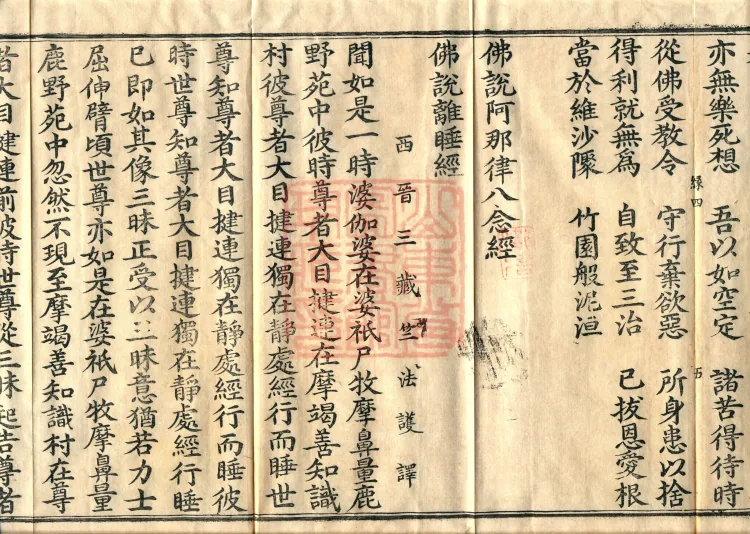 亦無樂死想 吾以如空定 諸苦得待時
從佛受教令 守行棄欲惡 所身患以捨
得利就無為 自致至三治 已拔恩愛根
當於維沙隟 竹園般泥洹
佛說阿那律八念經
佛說離睡經
西晉三藏竺法護譯
聞如是一時婆伽婆在婆祇尸牧摩鼻量鹿
野苑中彼時尊者大目揵連在摩竭善知識
村彼尊者大目揵連獨在靜處經行而睡世
尊知尊者大目揵連獨在靜處經行而睡彼
時世尊知尊者大目揵連獨在靜處經行睡
已即如其像三昧正受以三昧意猶若力士
屈伸臂頃世尊亦如是在婆祇尸牧摩鼻量
鹿野苑中忽然不現至摩竭善知識村在尊
者大目揵連前彼時世尊從三昧起告尊者